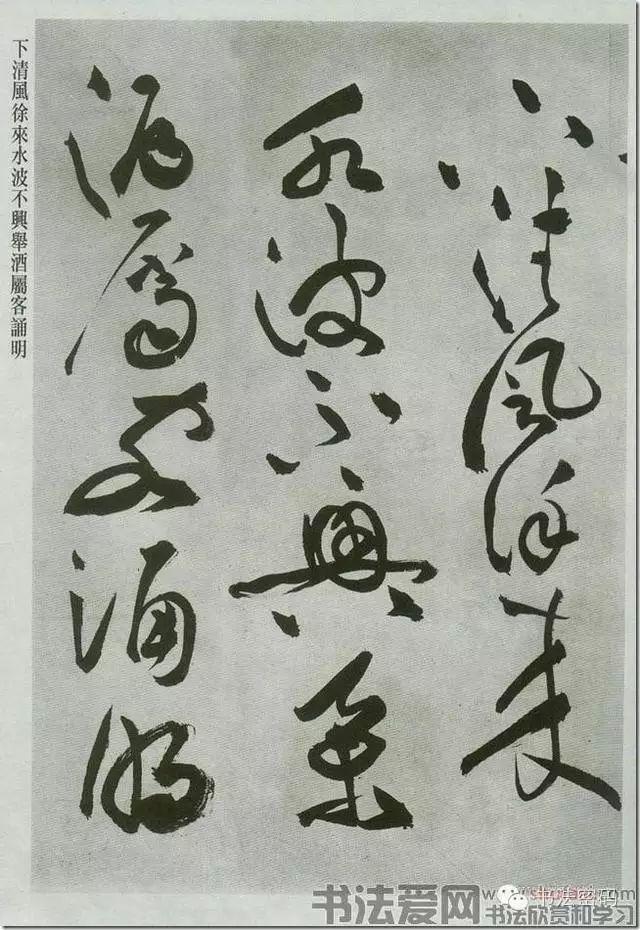 下清風徐來
水波不興舉
酒屬客誦明
下清風徐來水波不興舉酒屬客誦明
书法爱网
书法欣赏和学习